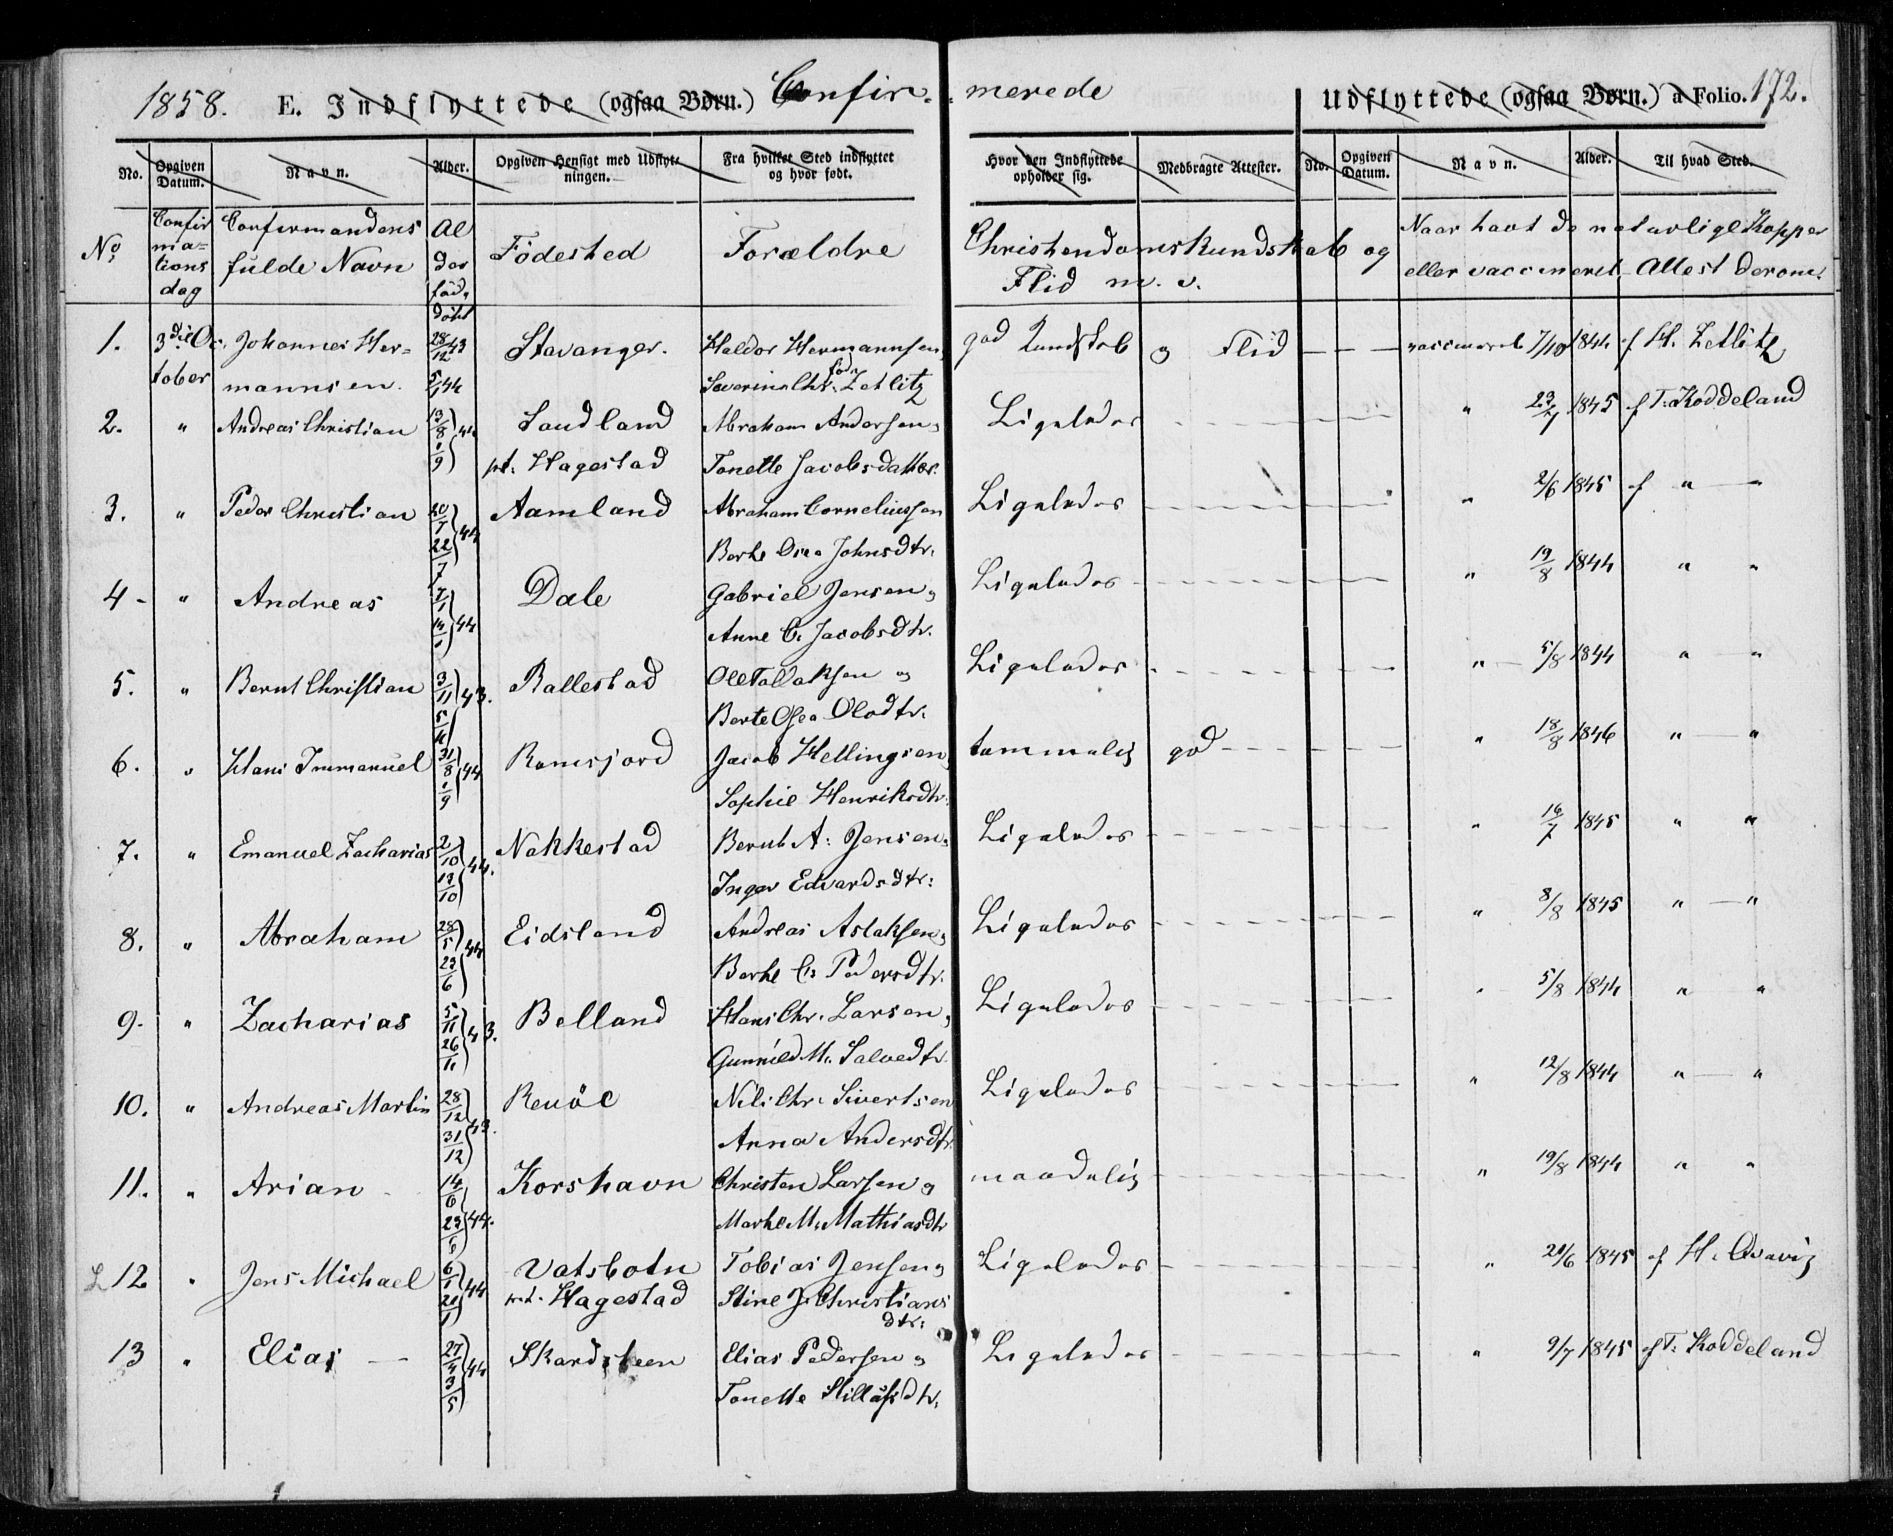 1858. E. Indflyttede (ogsaa Børn.) Confirmerede Udflyttede (ogsaa Børn.) a Folio. 172.
No. Opgiven Datum. Navn. Alder. Opgiven Hensigt med Udflytningen. Fra hvilket Sted indflyttet og hvor født. Hvor den Indflyttede opholder sig. Medbragte Attester. No. Opgiven Datum. Navn. Alder. Til hvad Sted.
No Confirmations dag Confirmandens fulde Navn Alder fød, døbt Födested Forældre Christendomskundskab og Flid m. v. Naar havt de naturlige Kopper eller vaccineret. Attest derom.
1. 3die October Johannes Hermannsen. 28/12 43 5/1 44 Stavanger. Haldor Hermannsen, Severine Chr. född Zetlitz god Kundskab og Flid — — — vaccineret 7/10 1844 af H. Zetlitz
2. " Andreas Christian 13/8 1/9 44 Sandland pt. Hagestad Abraham Andersen, Tonette Jacobsdatter Ligeledes " 23/7 1845 af T. Koddeland
3. " Peder Christian 20/7 22/7 44 Aamland Abraham Corneliussen Berte Johnsdtr. Ligeledes " 2/6 1845 af " — "
4 - " Andreas 7/1 14/1 44 Dale Gabriel Jensen, Anne C. Jacobsdtr. Ligeledes " 19/8 1844 " "
5. " Bernt Christian 3/11 5/11 43. Rallestad Ole Tallaksen og Berte Olsdtr. Ligeledes " 5/8 1844 " — "
6. " Hans Immanuel 31/8 1/9 44 Ramsjord Jacob Hellingsen, Sophie Henriksdtr. temmelig god " 18/8 1846 " — "
7. " Emanuel Zacharias 2/10 13/10 44. Nakkestad Bernt A. Jensen, Inger Edvardsdtr. Ligeledes " 16/7 1845 " "
8. " Abraham 28/5 23/6 44 Eidsland Andreas Aslaksen, Berte C. Pedersdtr. Ligeledes " 8/8 1845 " — "
9. " Zacharias 5/11 26/11 43. Belland Hans Chr. Larsen, Gunnild M. Salvedtr. Ligeledes " 5/8 1844 " "
10. " Andreas Martin 28/12 31/12 43. Revöe Nils Chr. Sivertsen Anna Andersdtr. Ligeledes " 12/8 1844 " — "
11. " Arian 14/6 23/6 44. Korshavn Christen Larsen og Marte M. Mathiasdtr. maadelig " 19/8 1844 " "
12 " Jens Michael 6/1 20/1 44 Vatsbotn pt. Hagestad Tobias Jensen, Stine J. Christiansdtr. Ligeledes " 20/6 1845 af H.
13 " Elias — 27/4 3/5 44 Skardsteen Elias Pedersen og Tonette dtr. Ligeledes " 9/7 1845 af T. Koddeland